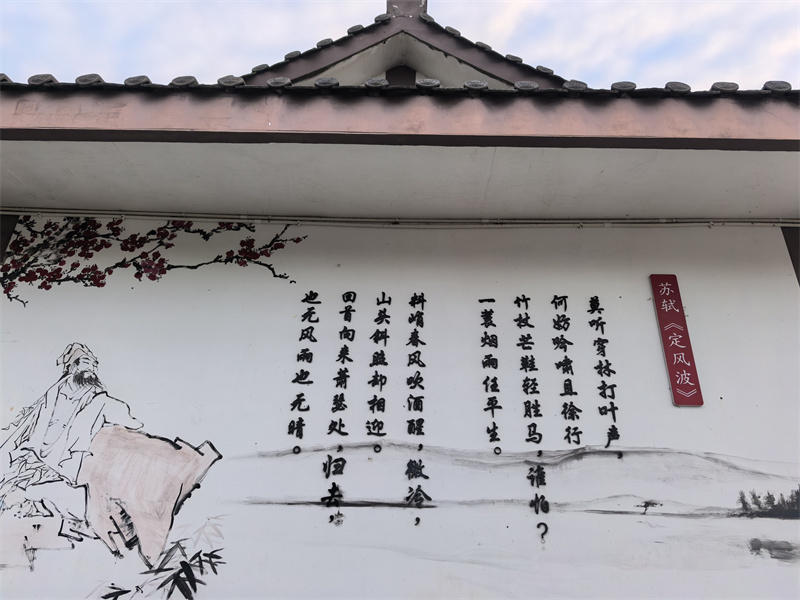 苏轼《定风波》
莫听穿林打叶声，
何妨吟啸且徐行
竹杖芒鞋轻胜马，谁怕？
一蓑烟雨任平生。
料峭春风吹酒醒，微冷，
山头斜照却相迎。
回首向来萧瑟处，归去，
也无风雨也无晴。